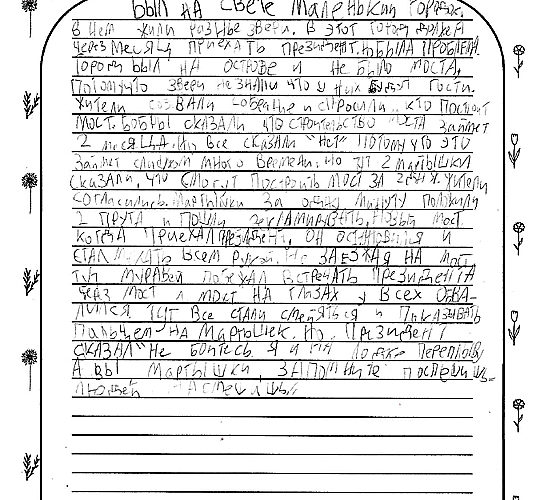 Был на свете маленький городок.
В нём жили разные звери. В этот город должен
через месяц приехать президент. Но была проблема.
Город был на острове и не было моста,
Потому что звери не знали что у них будут гости.
Жители созвали собрание и спросили кто построит
мост. Бобры сказали что строительство моста займёт
2 месяца. Но все сказали "нет" потому что это
займёт слишком много времени. Но тут 2 мартышки
сказали, что смогут построить мост за Жители
согласились. Мартышки за одну минуту положили
2 прута и пошли новый мост.
когда приехал президент, он остановился и
стал махать всем рукой. Не заезжая на мост
тут муравей поехал встречать президента
через мост и мост на глазах у всех обва-
лился тут все стали смеяться и показывать
Пальцем на мартышек. Но Президент
сказал "Не бойтесь. Я и на лодке переплыву
А вы мартышки, запомните поспешишь-
людей насмешишь